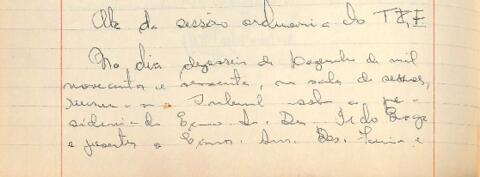 Ata da sessão ordinaria do T.R.E
No dia dezesseis de Dezembro de mil
novecentos e sessenta, na sala de sessões,
reuniu-se o Tribunal sob a pre-
sidencia do Exmo. Sr. Des.
e presentes os Exmos. Srs. Des. e